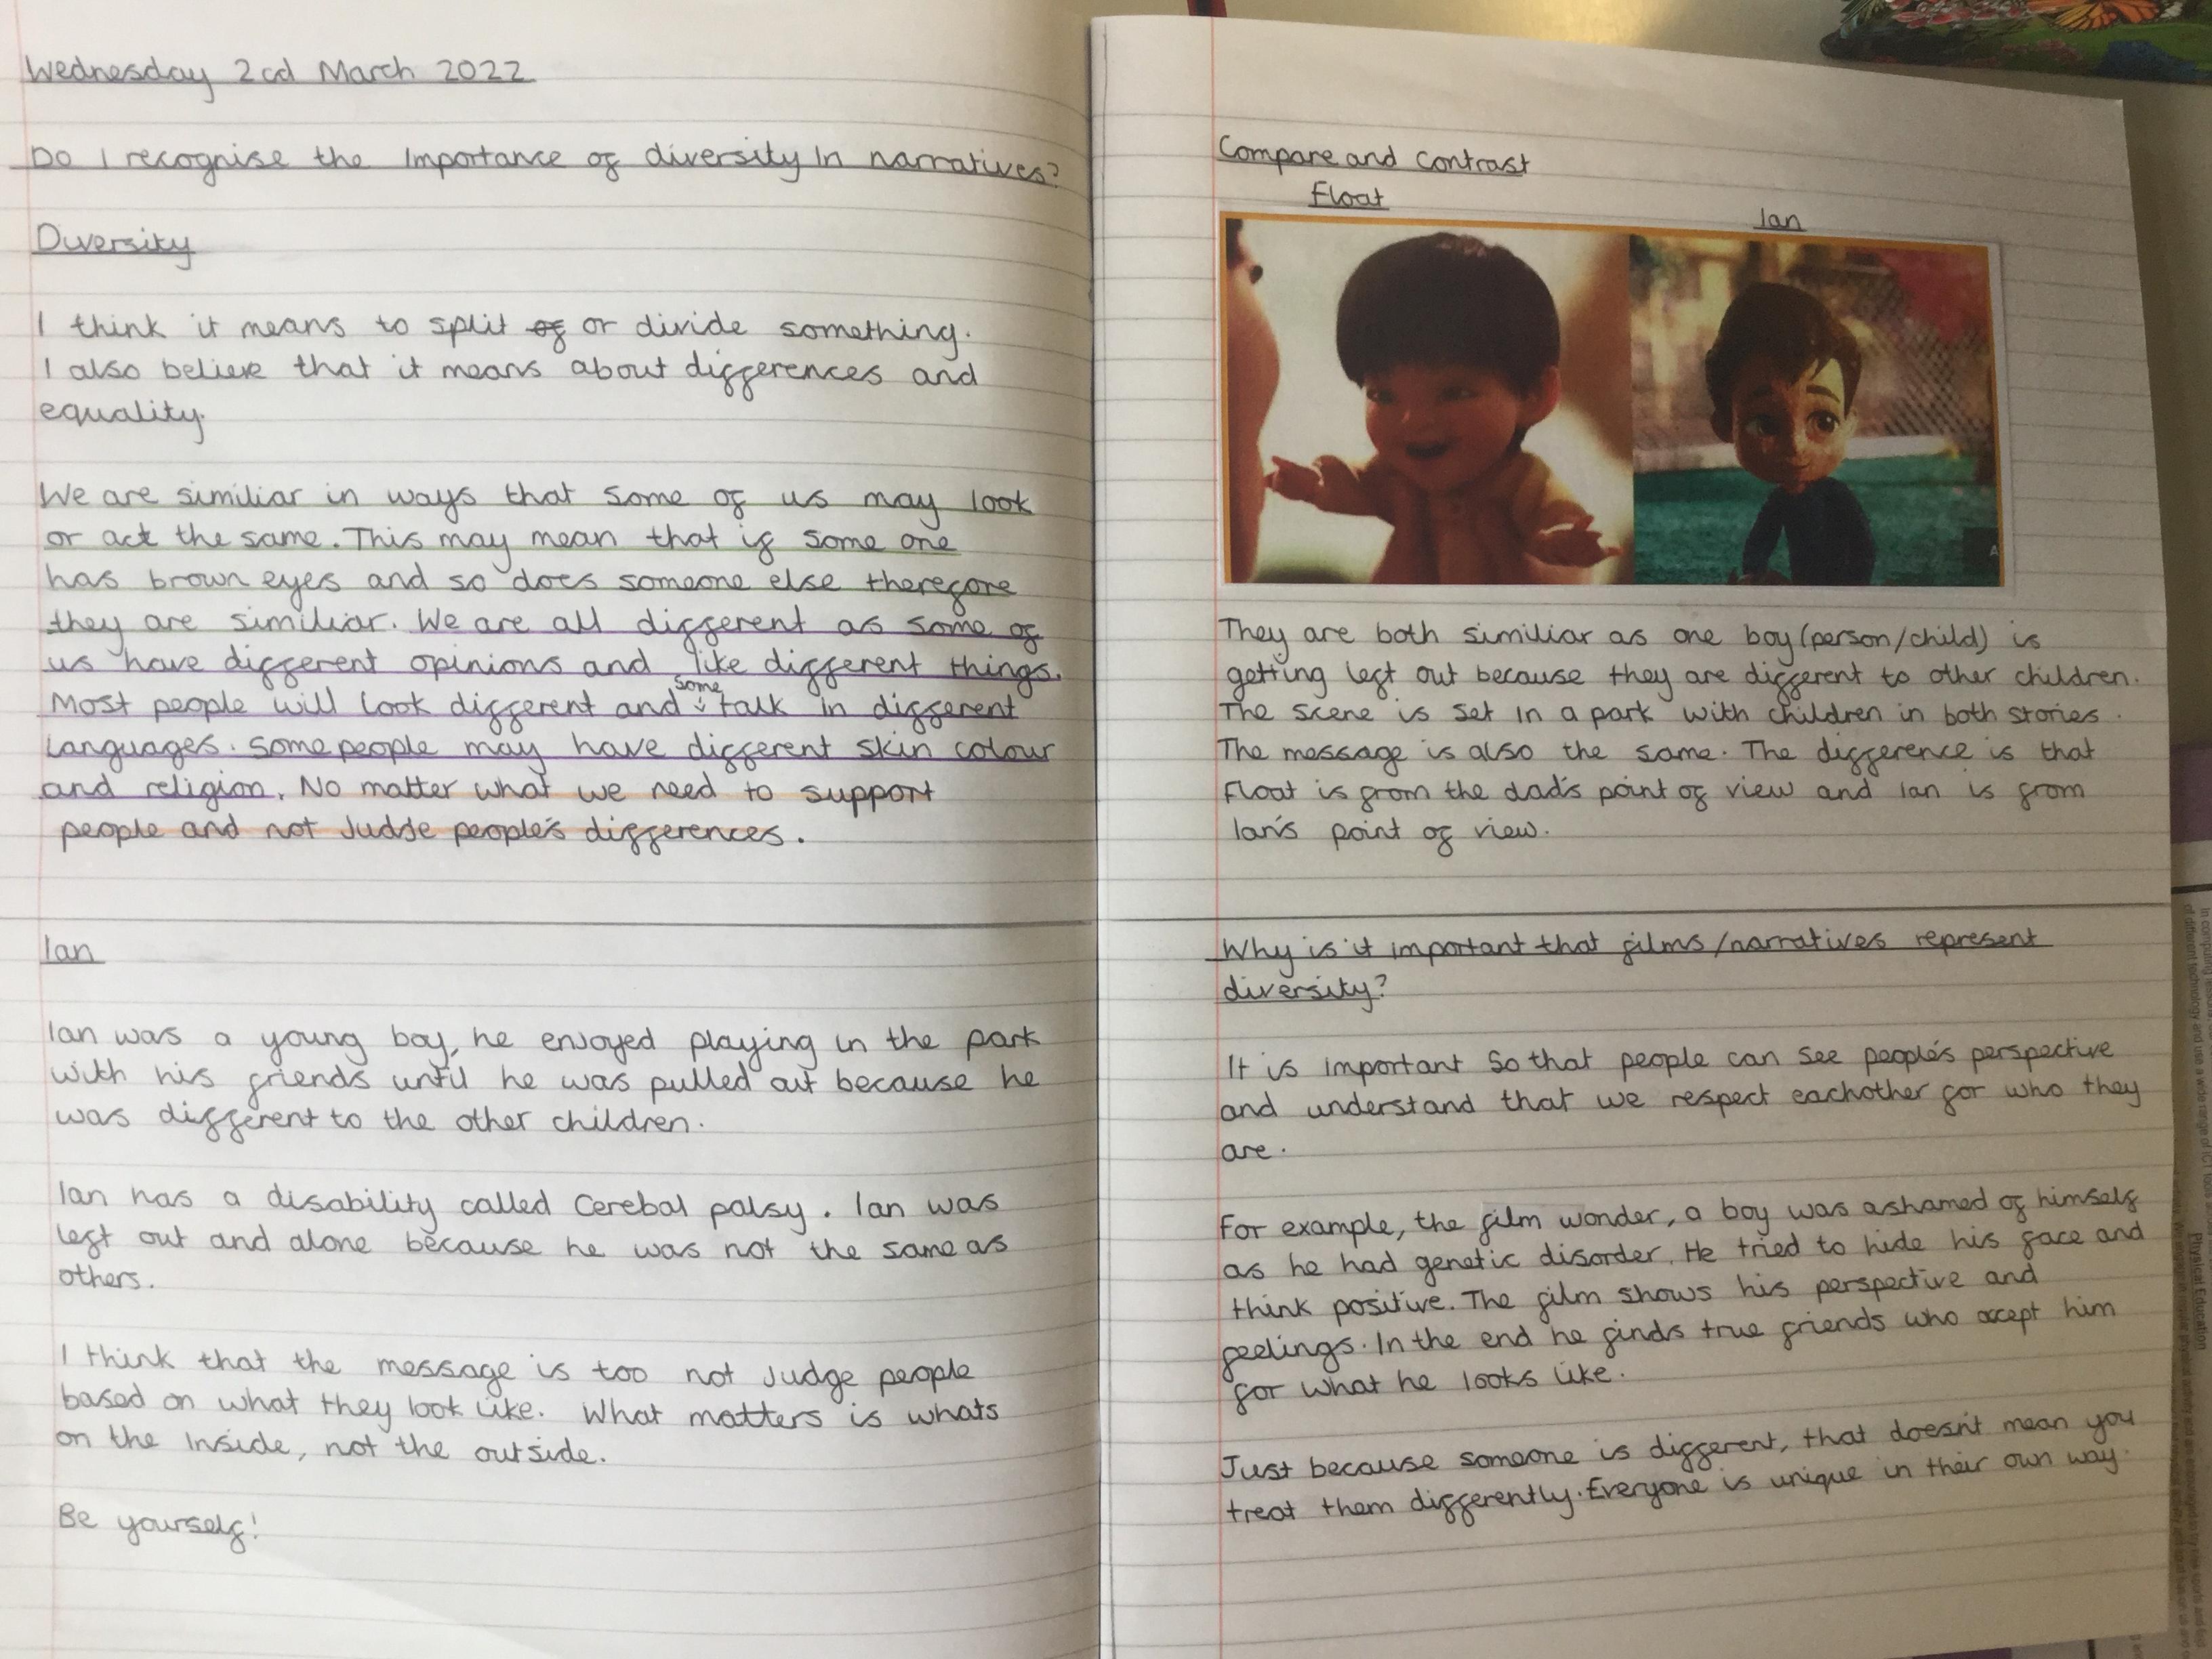 Wednesday 2cd March 2022
Do I recognise the Importance of diversity In narratives?
Diversity
I think it means to split of or divide something.
I also believe that it means about differences and
equality.
We are similiar in ways that some of us may look
or act the same. This may mean that if some one
has brown eyes and so does someone else therefore
they are similiar. We are all different as some of
us have different opinions and like different things.
Most people will look different and some talk in different
languages. Some people may have different skin colour
and religion. No matter what we need to support
people and not Judde people's differences.
Ian
Ian was a young boy, he enjoyed playing in the park
with his friends until he was pulled out because he
was different to the other children.
Ian has a disability called Cerebal palsy. Ian was
left out and alone because he was not the same as
others.
I think that the message is too not Judge people
based on what they look like. What matters is whats
on the Inside, not the outside.
Be yourself!
Compare and Contrast
Float
Ian
They are both similiar as one boy (person/child) is
getting left out because they are different to other children.
The scene is set In a park with children in both stories.
The message is also the same. The difference is that
Float is from the dad's point of view and Ian is from
Ian's point of view.
Why is it important that films/narratives represent
diversity?
It is important So that people can see people's perspective
and understand that we respect eachother for who they
are.
For example, the film wonder, a boy was ashamed of himself
as he had genetic disorder. He tried to hide his face and
think positive. The film shows his perspective and
feelings. In the end he finds true friends who accept him
for what he looks like.
Just because someone is different, that doesn't mean you
treat them differently. Everyone is unique in their own way.
Physical Education